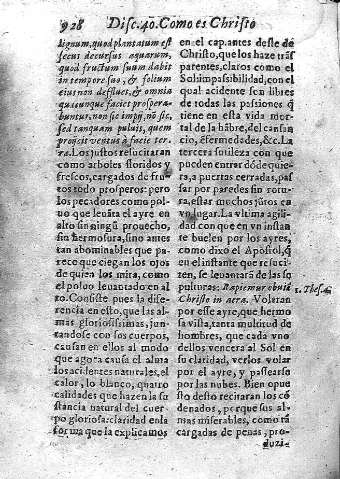 928 Disc. 40. Como es Christo
lignum, quod plantatum est
secus decursus aquarum,
quod fructum suum dabit
in tempore suo, & folium
eius non defluet, & omnia
quæcunque faciet prospera-
buntur, non sic impij, nō sic,
sed tanquam puluis, quem
proijcit ventus à facie ter-
ra. Los justos resucitaran
como arboles floridos y
frescos, cargados de fru-
tos todo prosperos: pero
los pecadores como pol-
uo que leuāta el ayre en
alto sin ningū prouecho,
sin hermosura, sino antes
tan abominables que pa-
rece que ciegan los ojos
de quien los mira, como
el poluo leuantado en al
to. Consiste pues la dife-
rencia en esto, que las al-
mas gloriosissimas, jun-
tandose con sus cuerpos,
causan en ellos al modo
que agora causa el alma
los accidentes naturales, el
calor, lo blanco, quatro
calidades que hazen la su
stancia natural del cuer-
po gloriosa: claridad en la
forma que la explicamos
en el cap. antes deste de
Christo, que los haze trās
parentes, claros como el
Sol: impassibilidad, con el
qual acidente son libres
de todas las passiones q̄
tiene en esta vida mor-
tal de la hābre, del cansan
cio, ēfermedades, &c. La
tercera sutileza con que
pueden entrar dōde quie-
ra, a puertas cerradas, pas
sar por paredes sin rotu-
ra, estar muchos jūtos en
vn lugar. La vltima agili-
dad con que en vn instan
te buelen por los ayres,
como dixo el Apostol, q̄
en el instante que resuci-
zen, se leuantarā de las se
pulturas: Rapiemur obuiā
Christo in aera. Volaran
1. Thes. 4.
por esse ayre, que hermo
sa vista, tanta multitud de
hombres, que cada vno
dellos vencera al Sol en
su claridad, verlos volar
por el ayre, y passearse
por las nubes. Bien opue
sto desto recitaran los cō
denados, porque sus al-
mas miserables, como tā
cargadas de penas, pro-
duzi-